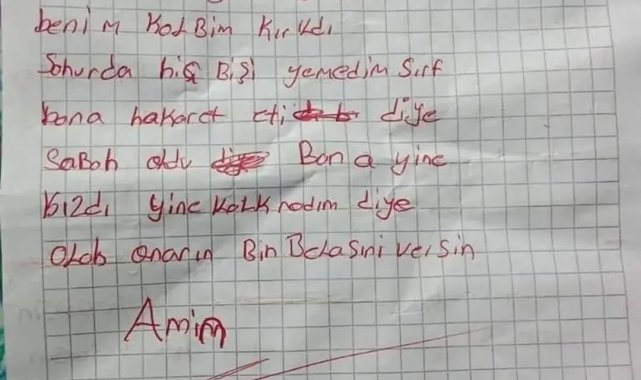 benim KalBim Kırıldı
Sohurda hiç Bişi yemedim Sırf
bana hakaret etti diye
SaBah oldu Bana yine
kızdı yine Kalkmadım diye
Olob onarın Bin Belasini versin
Amim